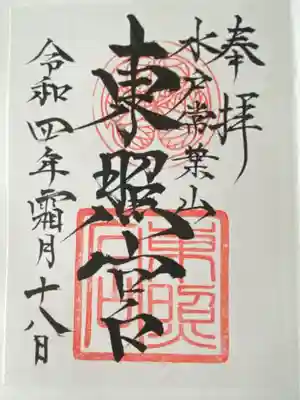 奉拝
水戸常葉山
東照宮
令和四年霜月十八日